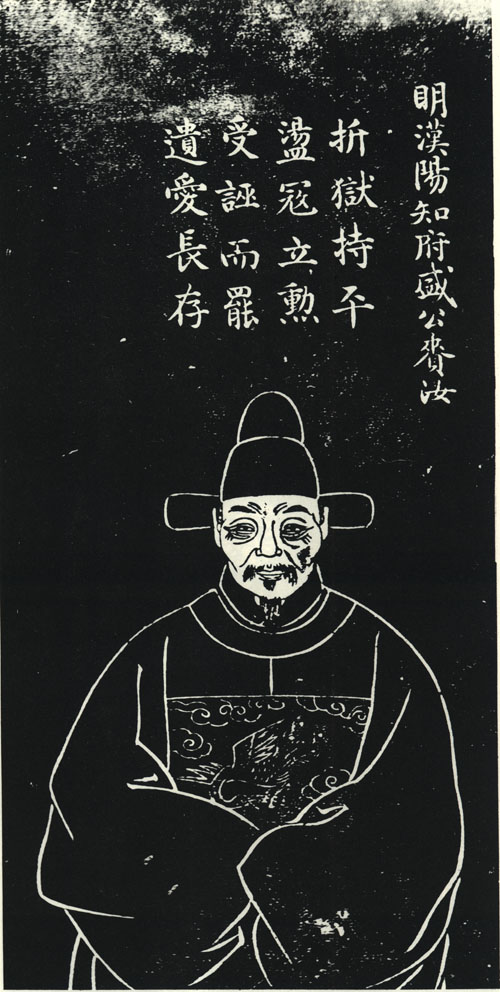 明漢陽知府盛公賚汝
折獄持平
盪寇立勲
受誣而罷
遺愛長存